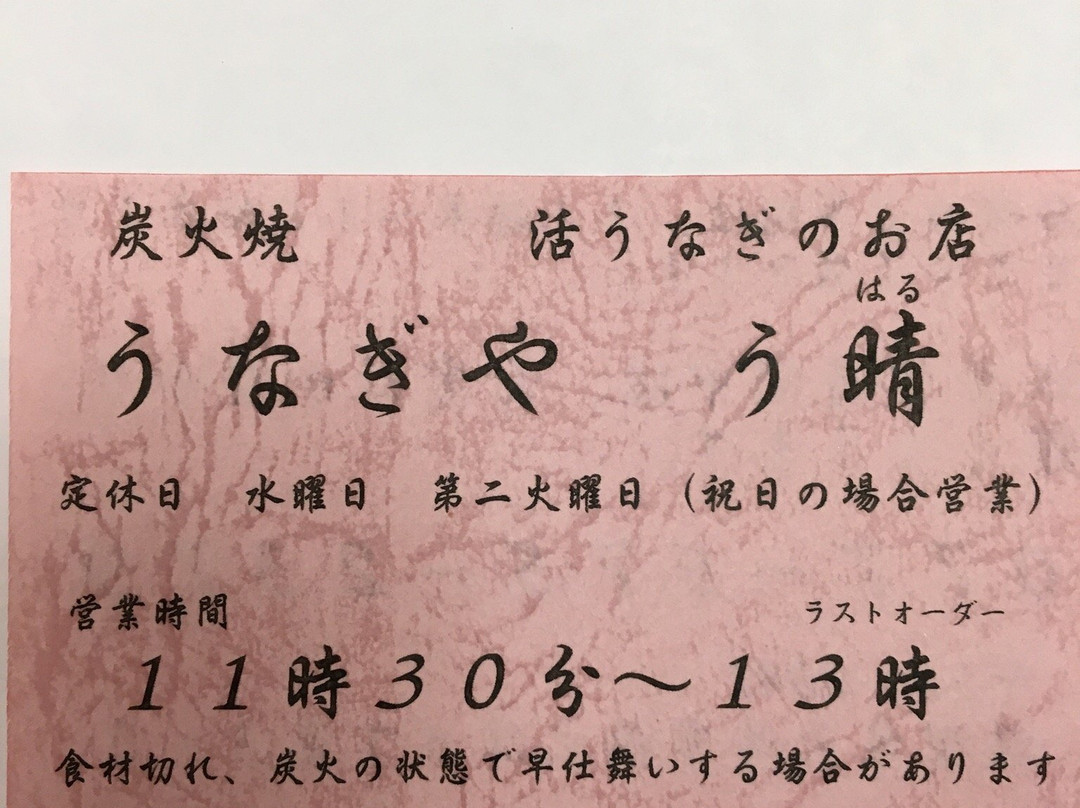 炭火焼　活うなぎのお店
はる
うなぎや　う晴
定休日　水曜日　第二火曜日（祝日の場合営業）
営業時間　ラストオーダー
１１時３０分～１３時
食材切れ、炭火の状態で早仕舞いする場合があります